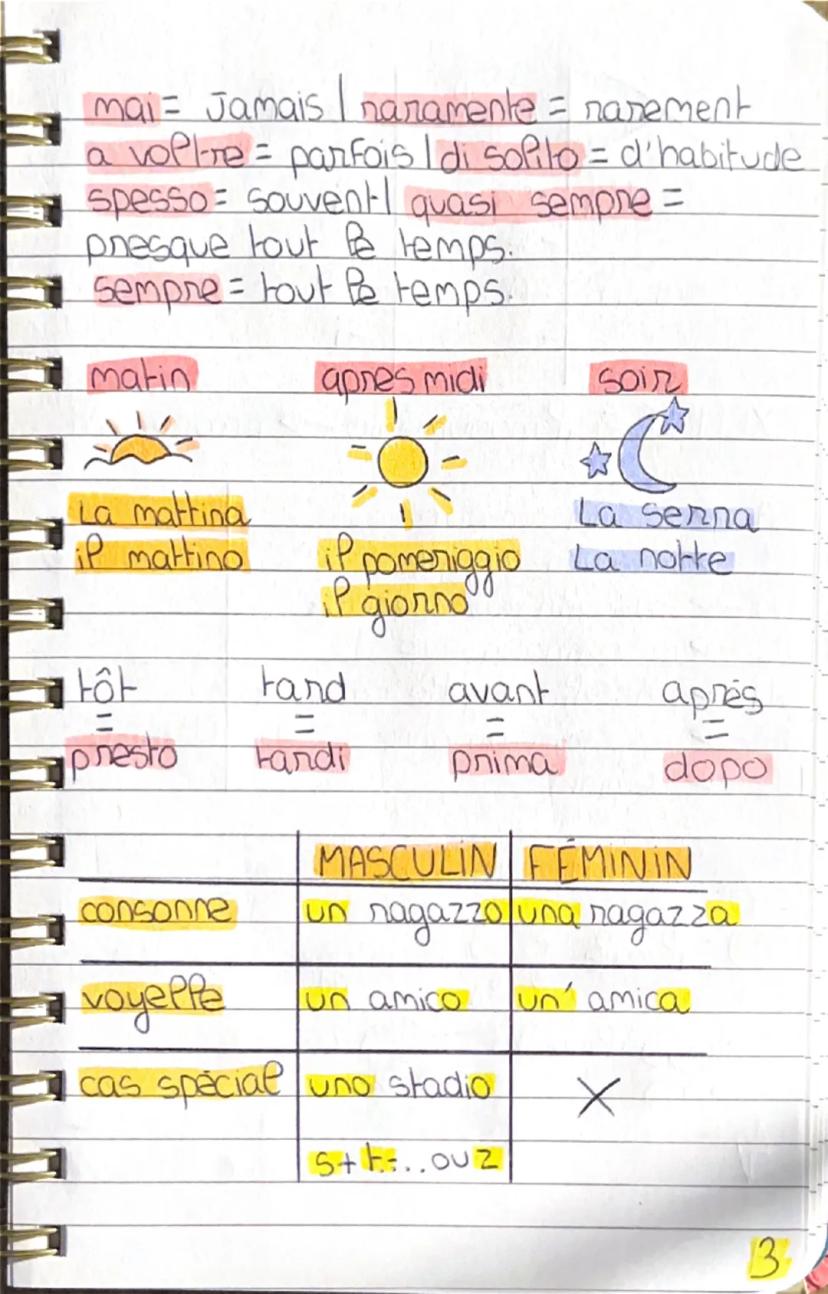 mai = Jamais | raramente = rarement
a voltre = parfois | di solito = d'habitude
spesso = souvent | quasi sempre =
presque tout le temps.
sempre = tout le temps.
matin apres midi soir
La mattina La serra
il mattino il pomeriggio La notte
il giorno
tôt tard avant après
= = = =
presto tardi prima dopo
MASCULIN FÉMININ
consonne un ragazzo una ragazza
voyelle un amico un' amica
cas spécial uno stadio X
s+t-...ou z
3